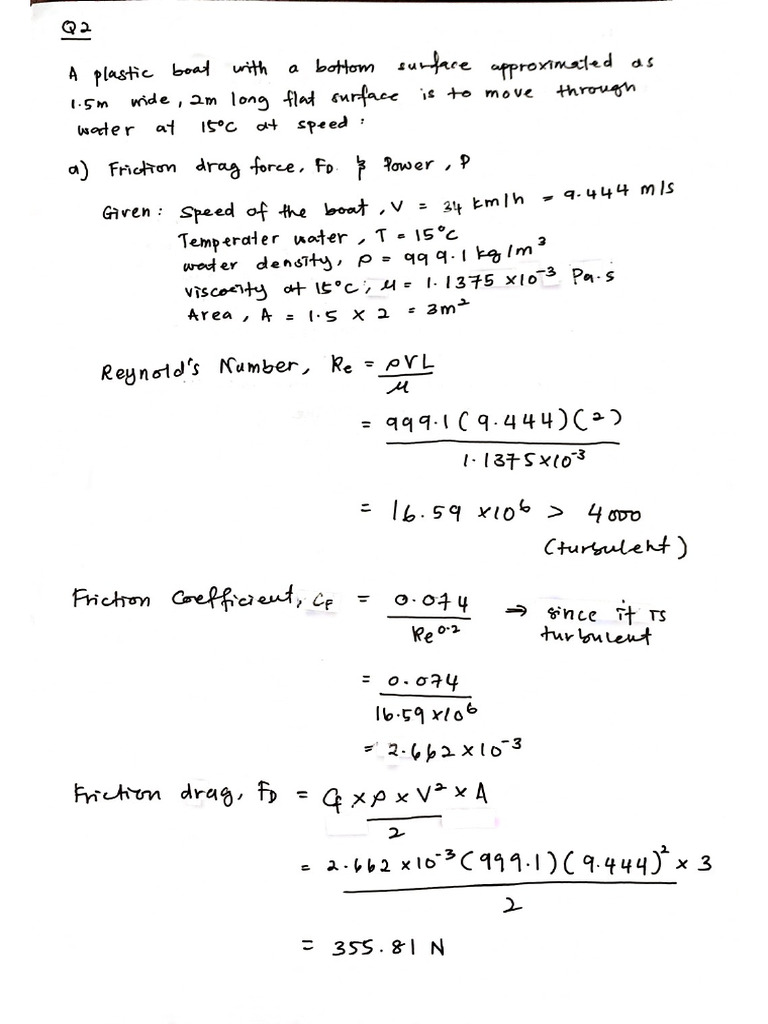 Q2
A plastic boat with a bottom surface approximated as
1.5m wide, 2m long flat surface is to move through
water at 15°C at speed :
a) Friction drag force, FD & Power, P
Given : Speed of the boat, V = 34 km/h = 9.444 m/s
Temperater water, T = 15°C
water density, ρ = 999.1 kg/m³
viscocity at 15°C, μ = 1.1375 x10⁻³ Pa.s
Area, A = 1.5 x 2 = 3m²
Reynold's Number, Re = ρVL
μ
= 999.1 (9.444)(2)
1.1375x10⁻³
= 16.59 x10⁶ > 4000
(turbulent)
Friction Coefficient, CF = 0.074 ⇒ since it is
Re⁰·² turbulent
= 0.074
16.59 x10⁶
= 2.662 x10⁻³
Friction drag, FD = CF x ρ x V² x A
2
= 2.662 x10⁻³ (999.1)(9.444)² x 3
2
= 355.81 N